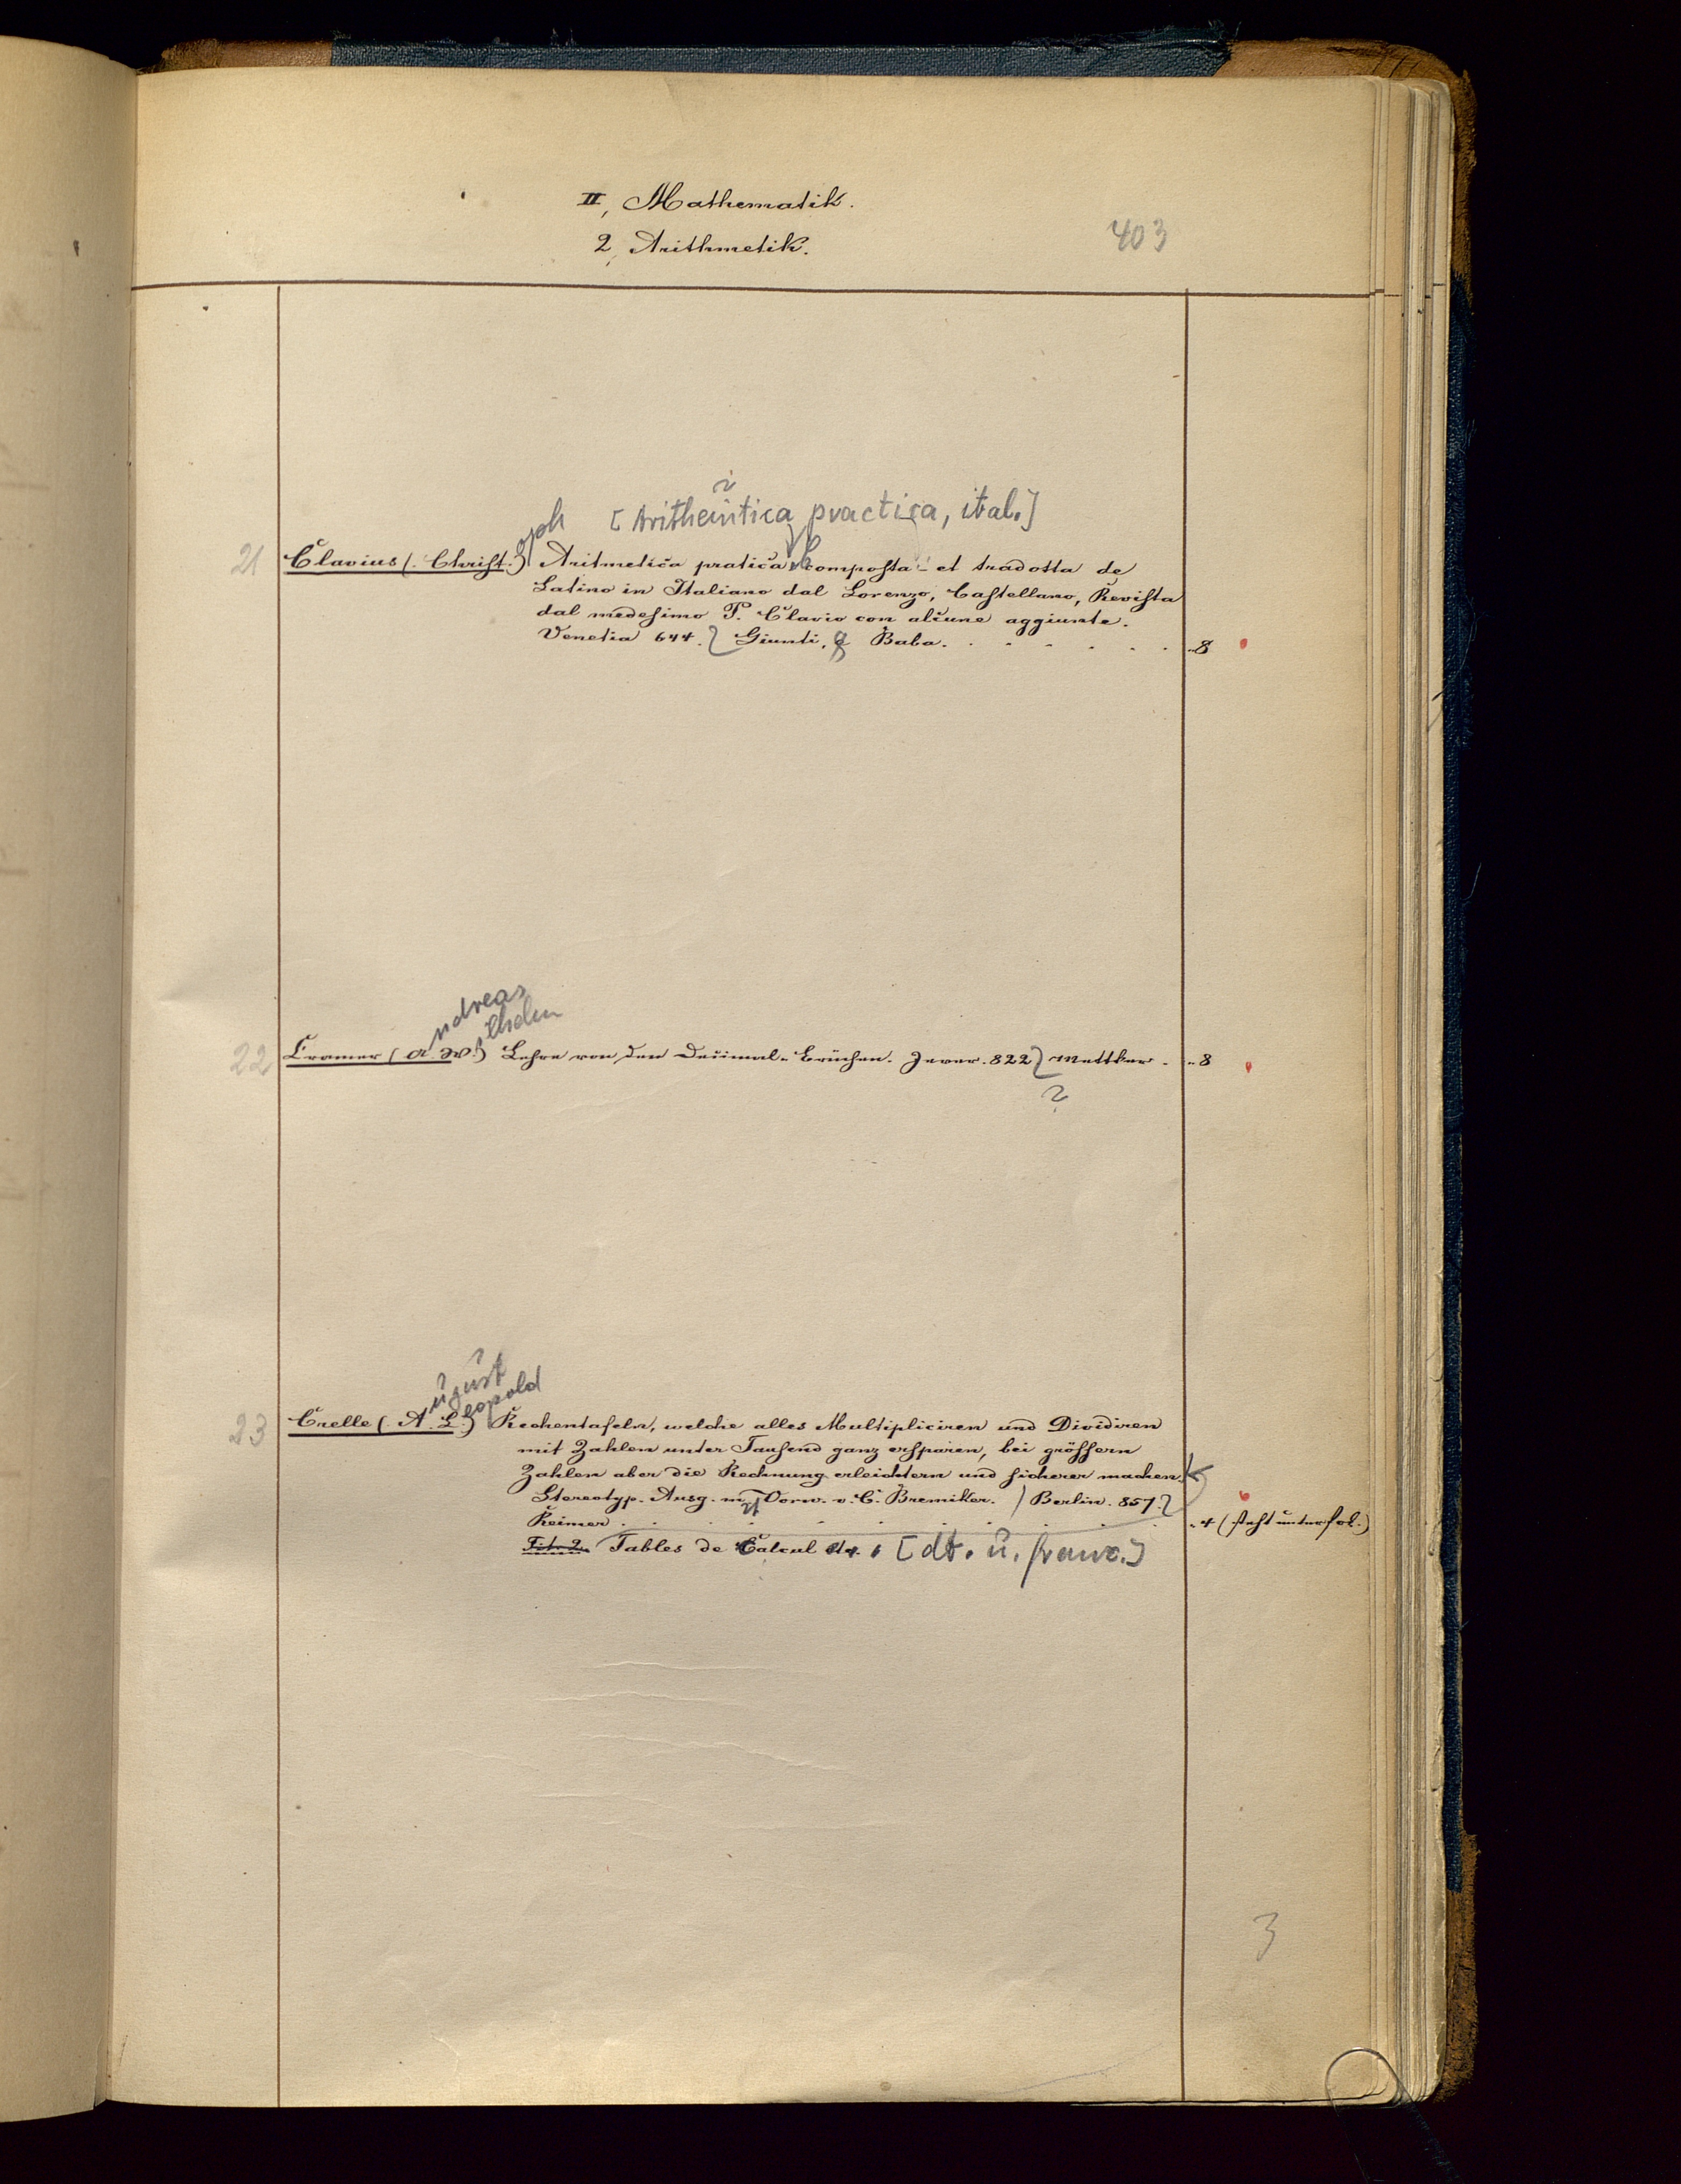 II, Mathematik.
2, Arithmetik.
403
[Arithmetica practica, ital.]
oph
21 Clavius (. Christ.) Aritmetica pratica composta et tradotta de
Latino in Italiano dal Lorenzo, Castellano, Revista
dal medesimo P. Clavio con alcune aggiunte.
Venetia 644. Giunti, & Baba. . . . . . . „8
ndreas
ilhelm
22 Cramer (A. W.) Lehre von den Decimal-Brüchen. Jever. 822 Mettker. „8
?
ugust
eopold
23 Crelle (. A. L.) Rechentafeln, welche alles Multipliciren und Dividiren
mit Zahlen unter Tausend ganz ersparen, bei grössern
Zahlen aber die Rechnung erleichtern und sicherer machen.
Stereotyp. Ausg. m. Vorw. v. C. Bremiker. Berlin. 857.
Reimer . . . . . . . . . . „4 (steht unter fol.)
Tit. 2. Tables de Calcul etc. [dt. u. franz.]
3